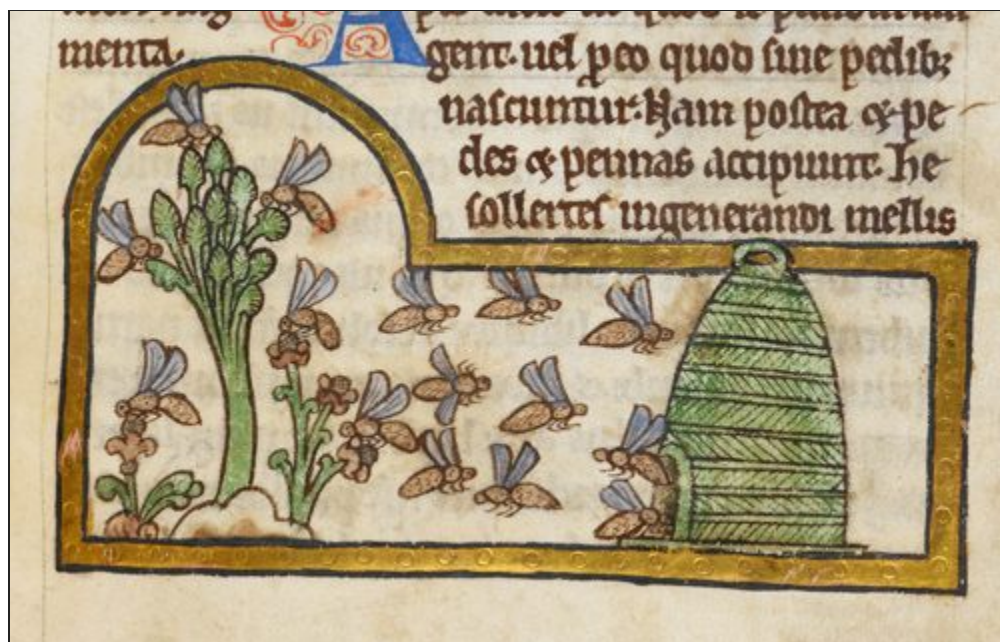 menta. gent. uel ꝓeo quod sine pedibꝫ
nascuntur. Nam postea & pe
des & pennas accipiunt. he
sollertes ingenerandi mellis